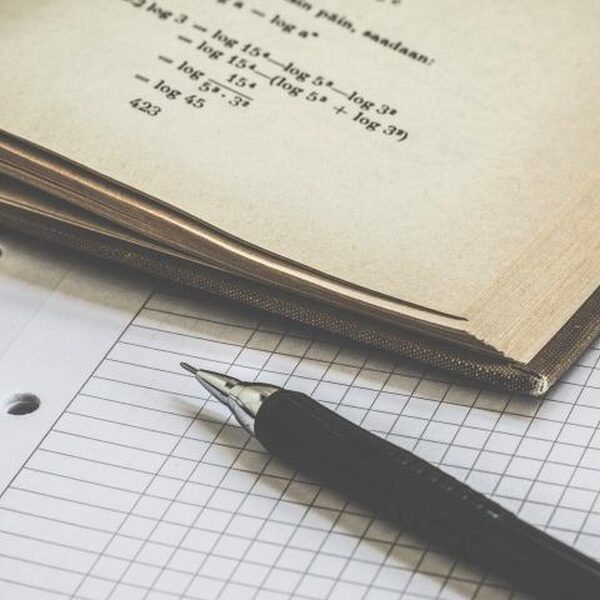 a — log aⁿ
päin, saadaan:
log 3 — log 15⁴—log 5²—log 3²
— log 15⁴—(log 5² + log 3²)
— log 15⁴
5² · 3²
— log 45
423